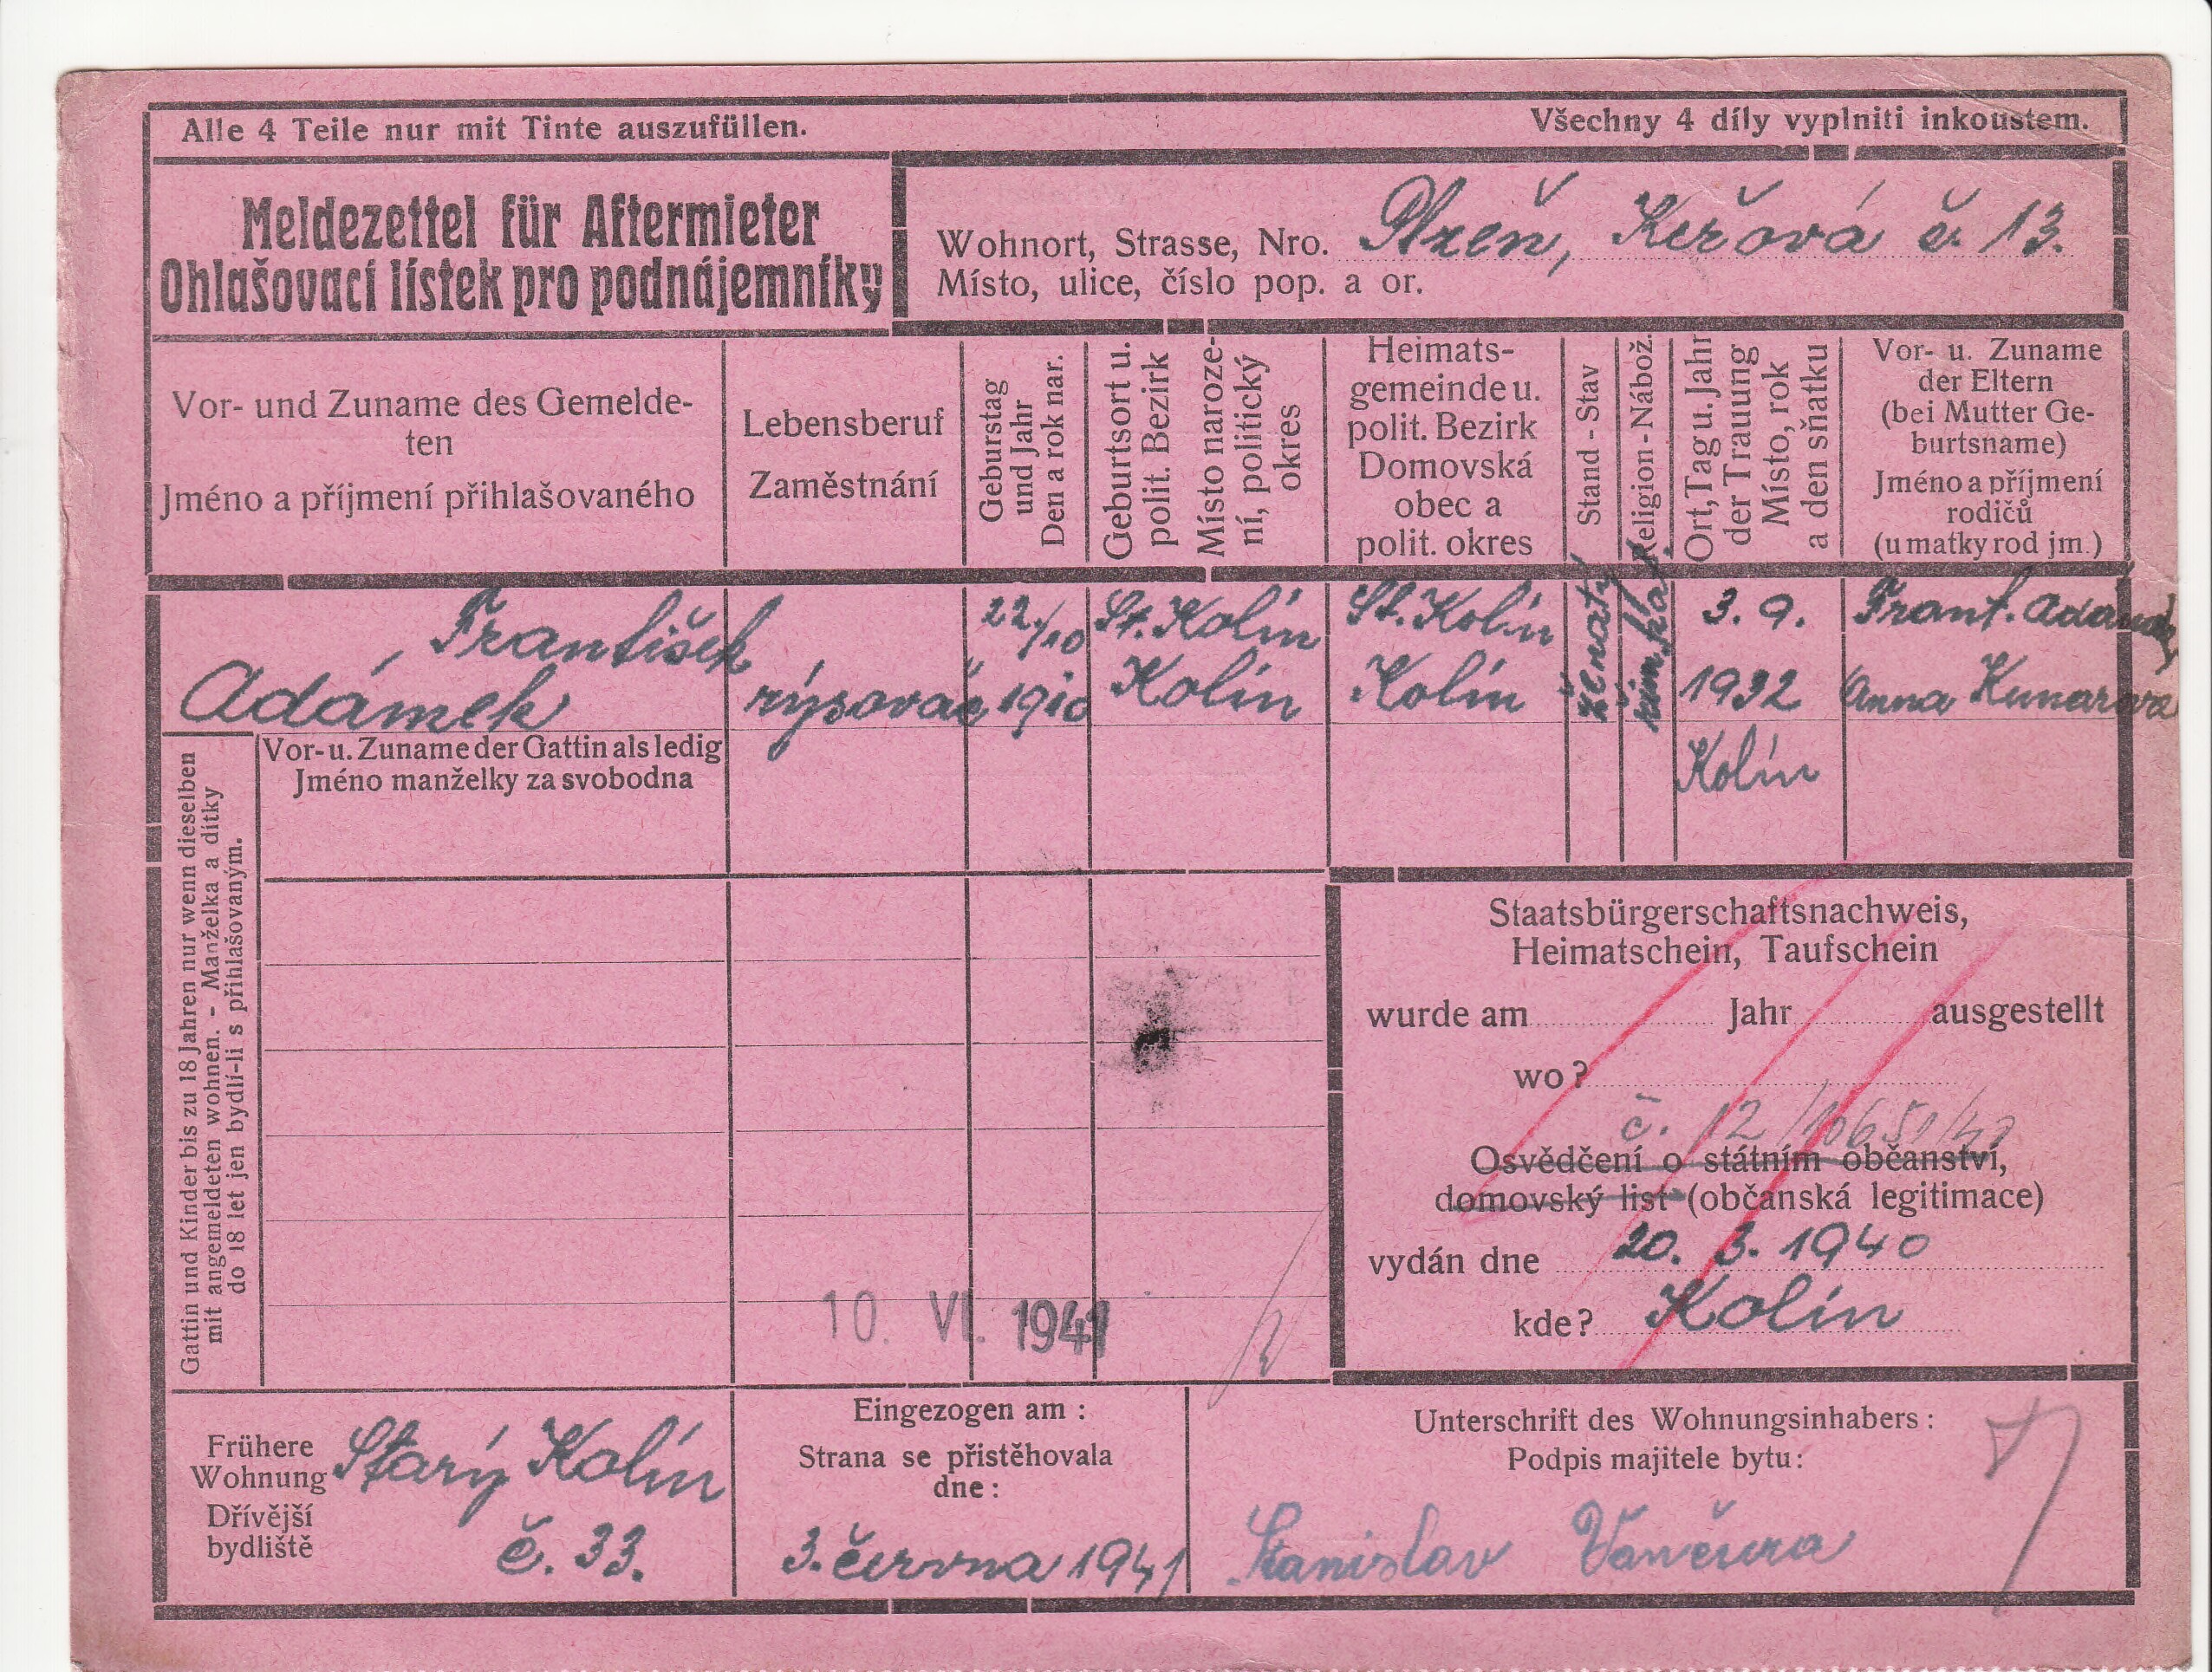 Alle 4 Teile nur mit Tinte auszufüllen.
Všechny 4 díly vyplniti inkoustem.
Meldezettel für Aftermieter
Ohlašovací lístek pro podnájemníky
Wohnort, Strasse, Nro. Plzeň, Keřová č. 13.
Místo, ulice, číslo pop. a or.
Vor- und Zuname des Gemelde-
ten
Jméno a příjmení přihlašovaného
Lebensberuf
Zaměstnání
Geburstag
und Jahr
Den a rok nar.
Geburtsort u.
polit. Bezirk
Místo naroze-
ní, politický
okres
Heimats-
gemeinde u.
polit. Bezirk
Domovská
obec a
polit. okres
Stand - Stav
Religion - Nábož.
Ort, Tag u. Jahr
der Trauung
Místo, rok
a den sňatku
Vor- u. Zuname
der Eltern
(bei Mutter Ge-
burtsname)
Jméno a příjmení
rodičů
(u matky rod jm.)
František
Adámek
rýsovač
22./10
1910
St. Kolín
Kolín
St. Kolín
Kolín
ženatý
řím. kat.
3. 9.
1932
Kolín
Frant. Adámek
Anna
Vor- u. Zuname der Gattin als ledig
Jméno manželky za svobodna
Gattin und Kinder bis zu 18 Jahren nur wenn dieselben
mit angemeldeten wohnen. - Manželka a dítky
do 18 let jen bydlí-li s přihlašovaným.
Staatsbürgerschaftsnachweis,
Heimatschein, Taufschein
wurde am Jahr ausgestellt
wo?
č. 12/10651/40
Osvědčení o státním občanství,
domovský list (občanská legitimace)
vydán dne 20. 3. 1940
kde? Kolín
10. VI. 1941
Frühere
Wohnung
Dřívější
bydliště
Starý Kolín
č. 33.
Eingezogen am :
Strana se přistěhovala
dne :
3. června 1941
Unterschrift des Wohnungsinhabers :
Podpis majitele bytu :
Stanislav Vančura